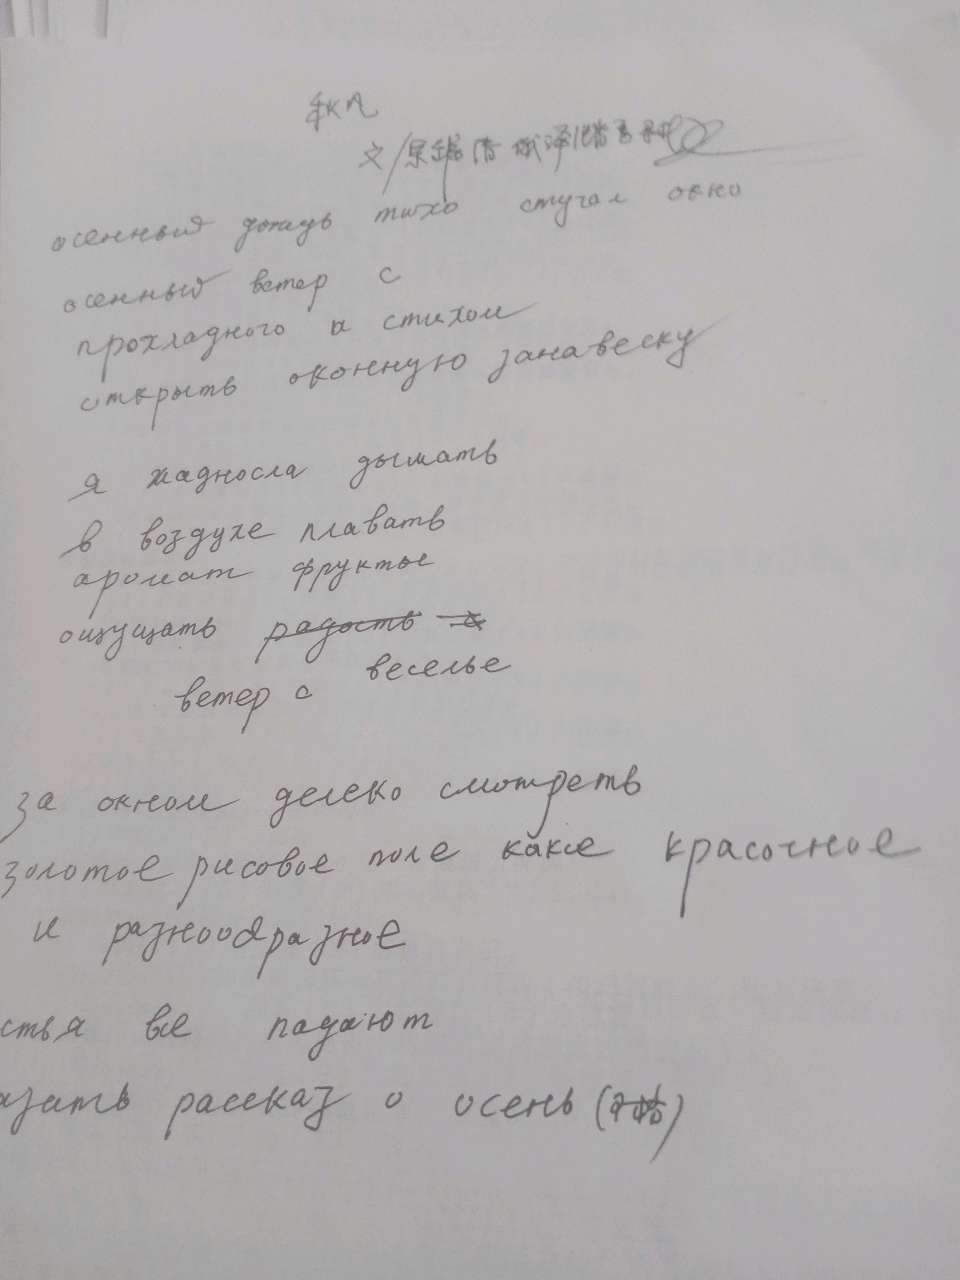 文/
осенный дождь тихо стучал окно
осенный ветер с
прохладного и стихом
открыть оконную занавеску
я жадносла дышать
в воздухе плавать
аромат фрукты
ощущать радость с
веселье
ветер с
за окном делеко смотреть
золотое рисовое поле какие красочное
и разнообразное
стья все падают
азать рассказ о осень